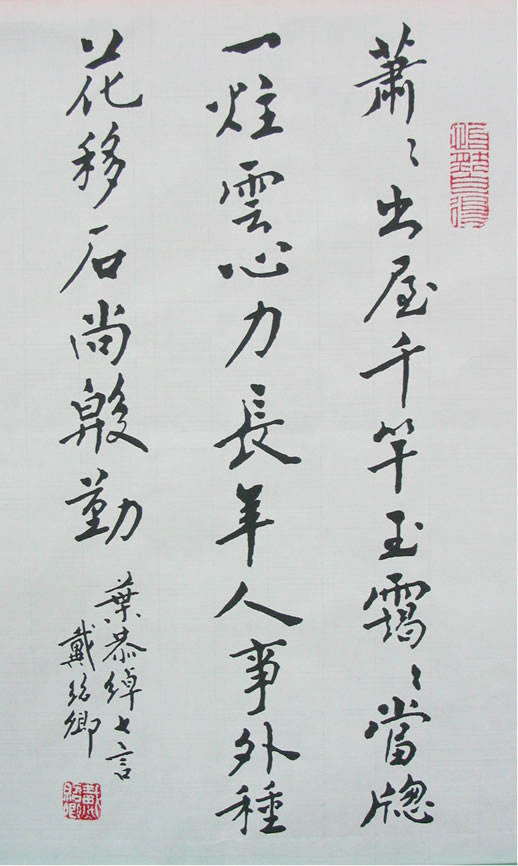 蕭〻出屋千竿玉靄〻當牕
一炷雲心力長年人事外種
花移石尚殷勤
葉恭綽七言
戴紹卿